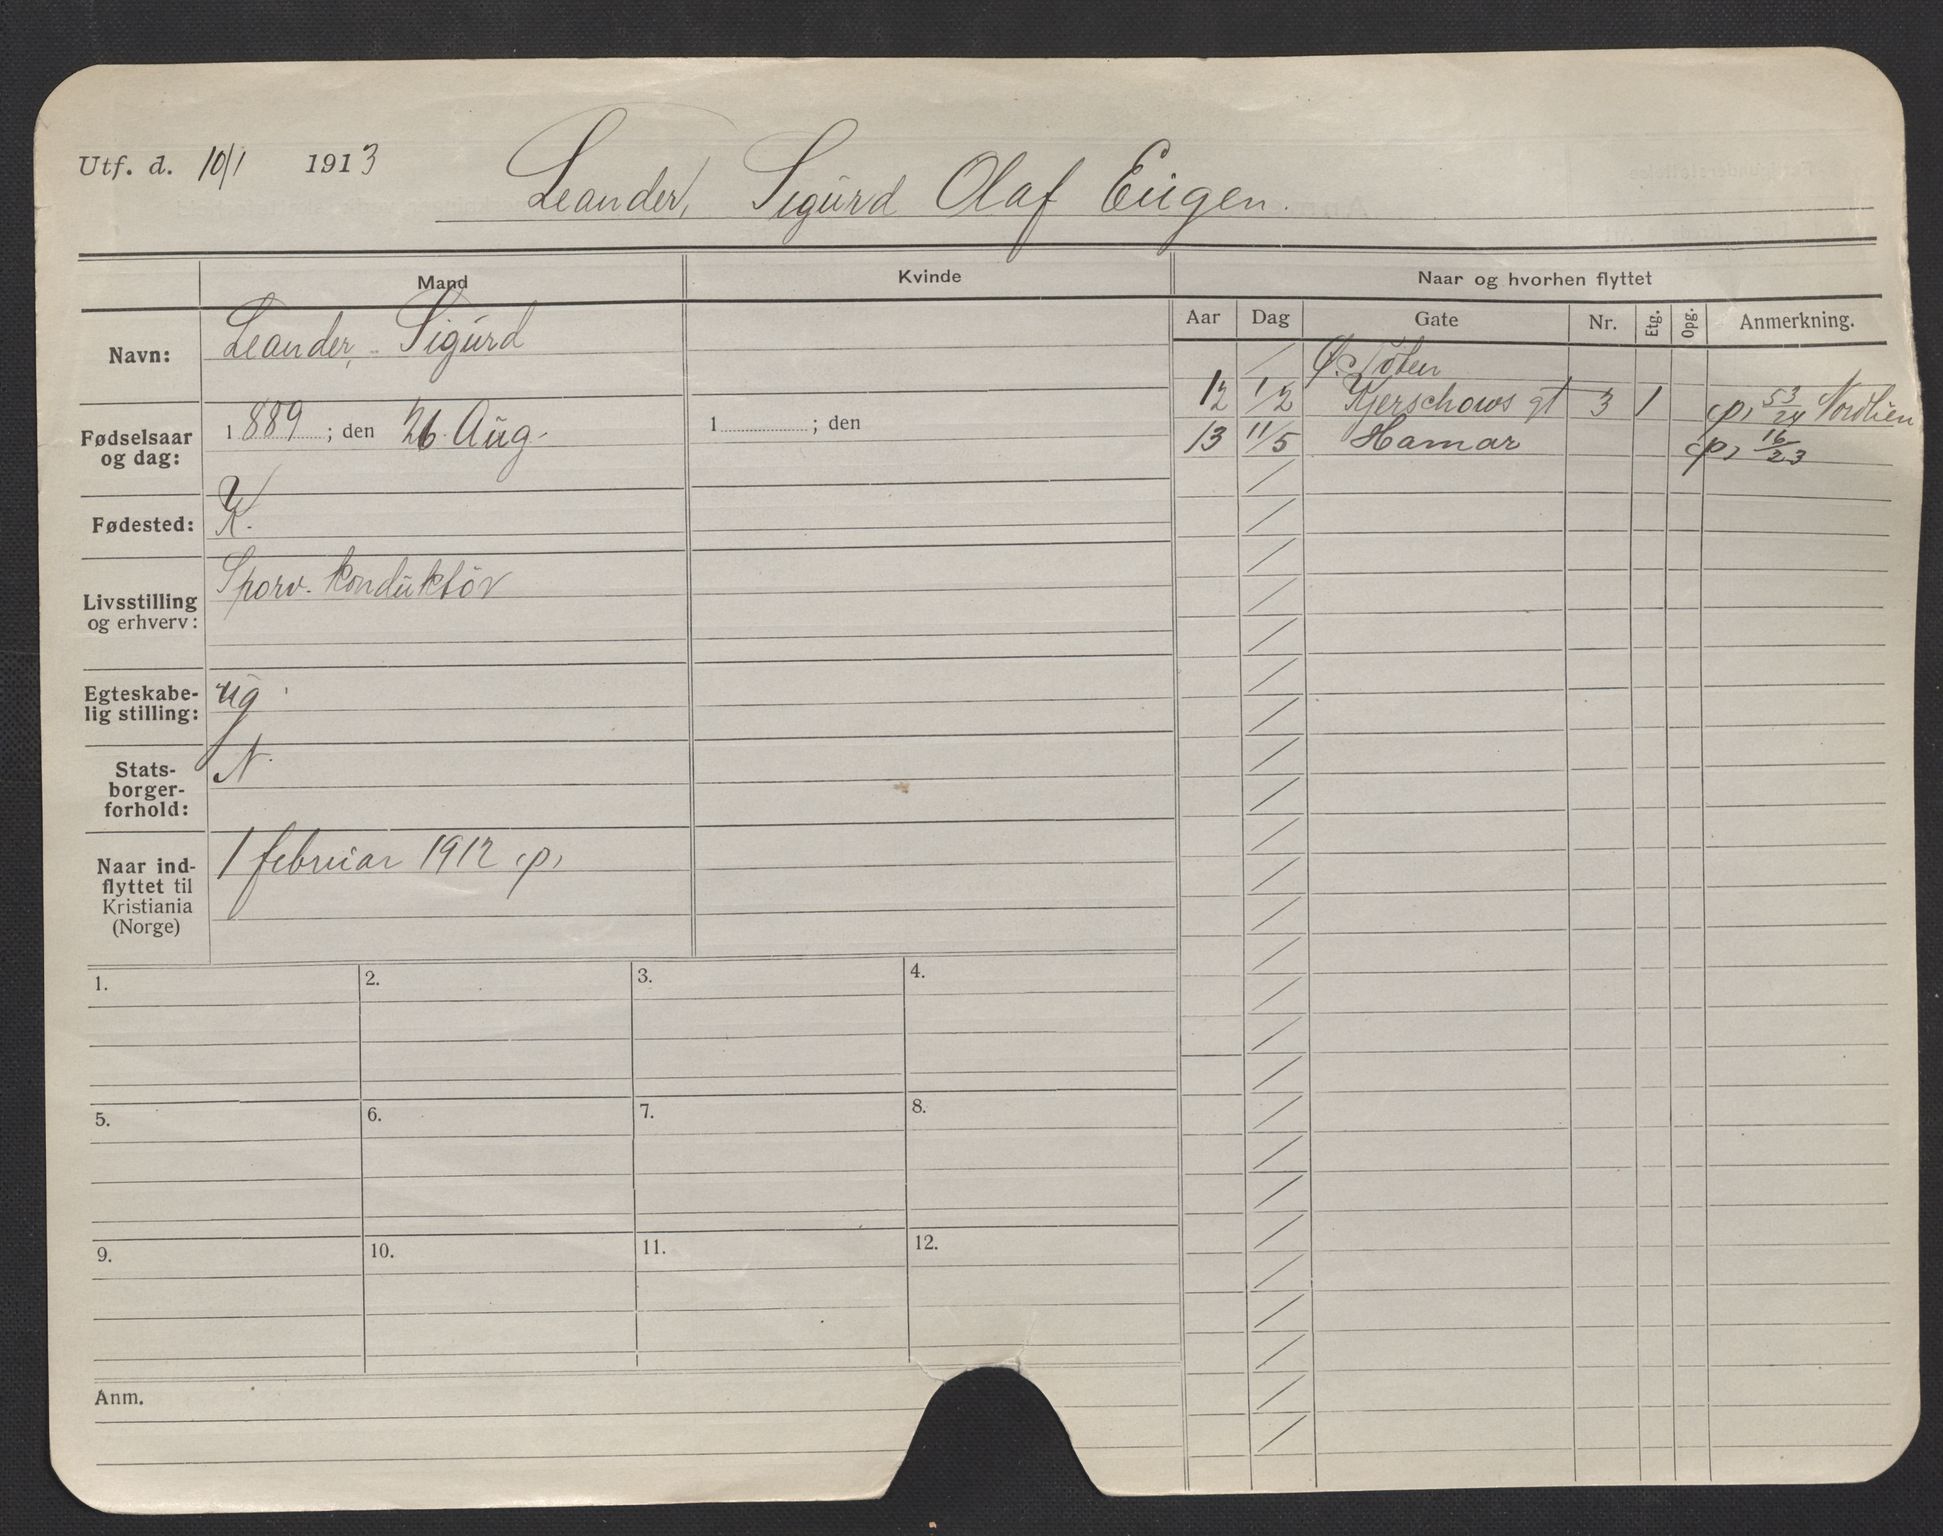 Utf. d. 10/1 1913
Leander, Sigurd Olaf Eugen.
Mand
Kvinde
Naar og hvorhen flyttet
Navn:
Leander, Sigurd
Fødselsaar og dag:
1889; den 26. Aug.
1 ; den
Fødested:
K.
Livsstilling og erhverv:
Sporv. konduktör
Egteskabelig stilling:
ug
Statsborgerforhold:
N.
Naar indflyttet til Kristiania (Norge)
1 februar 1912 (p)
1. 2. 3. 4.
5. 6. 7. 8.
9. 10. 11. 12.
Anm.
Aar Dag Gate Nr. Etg. Opg. Anmerkning.
Ø. Toten
12 1/2 Kjerschows gt 3 1 (p) 53/24 Nordlien
13 11/5 Hamar (p) 16/23